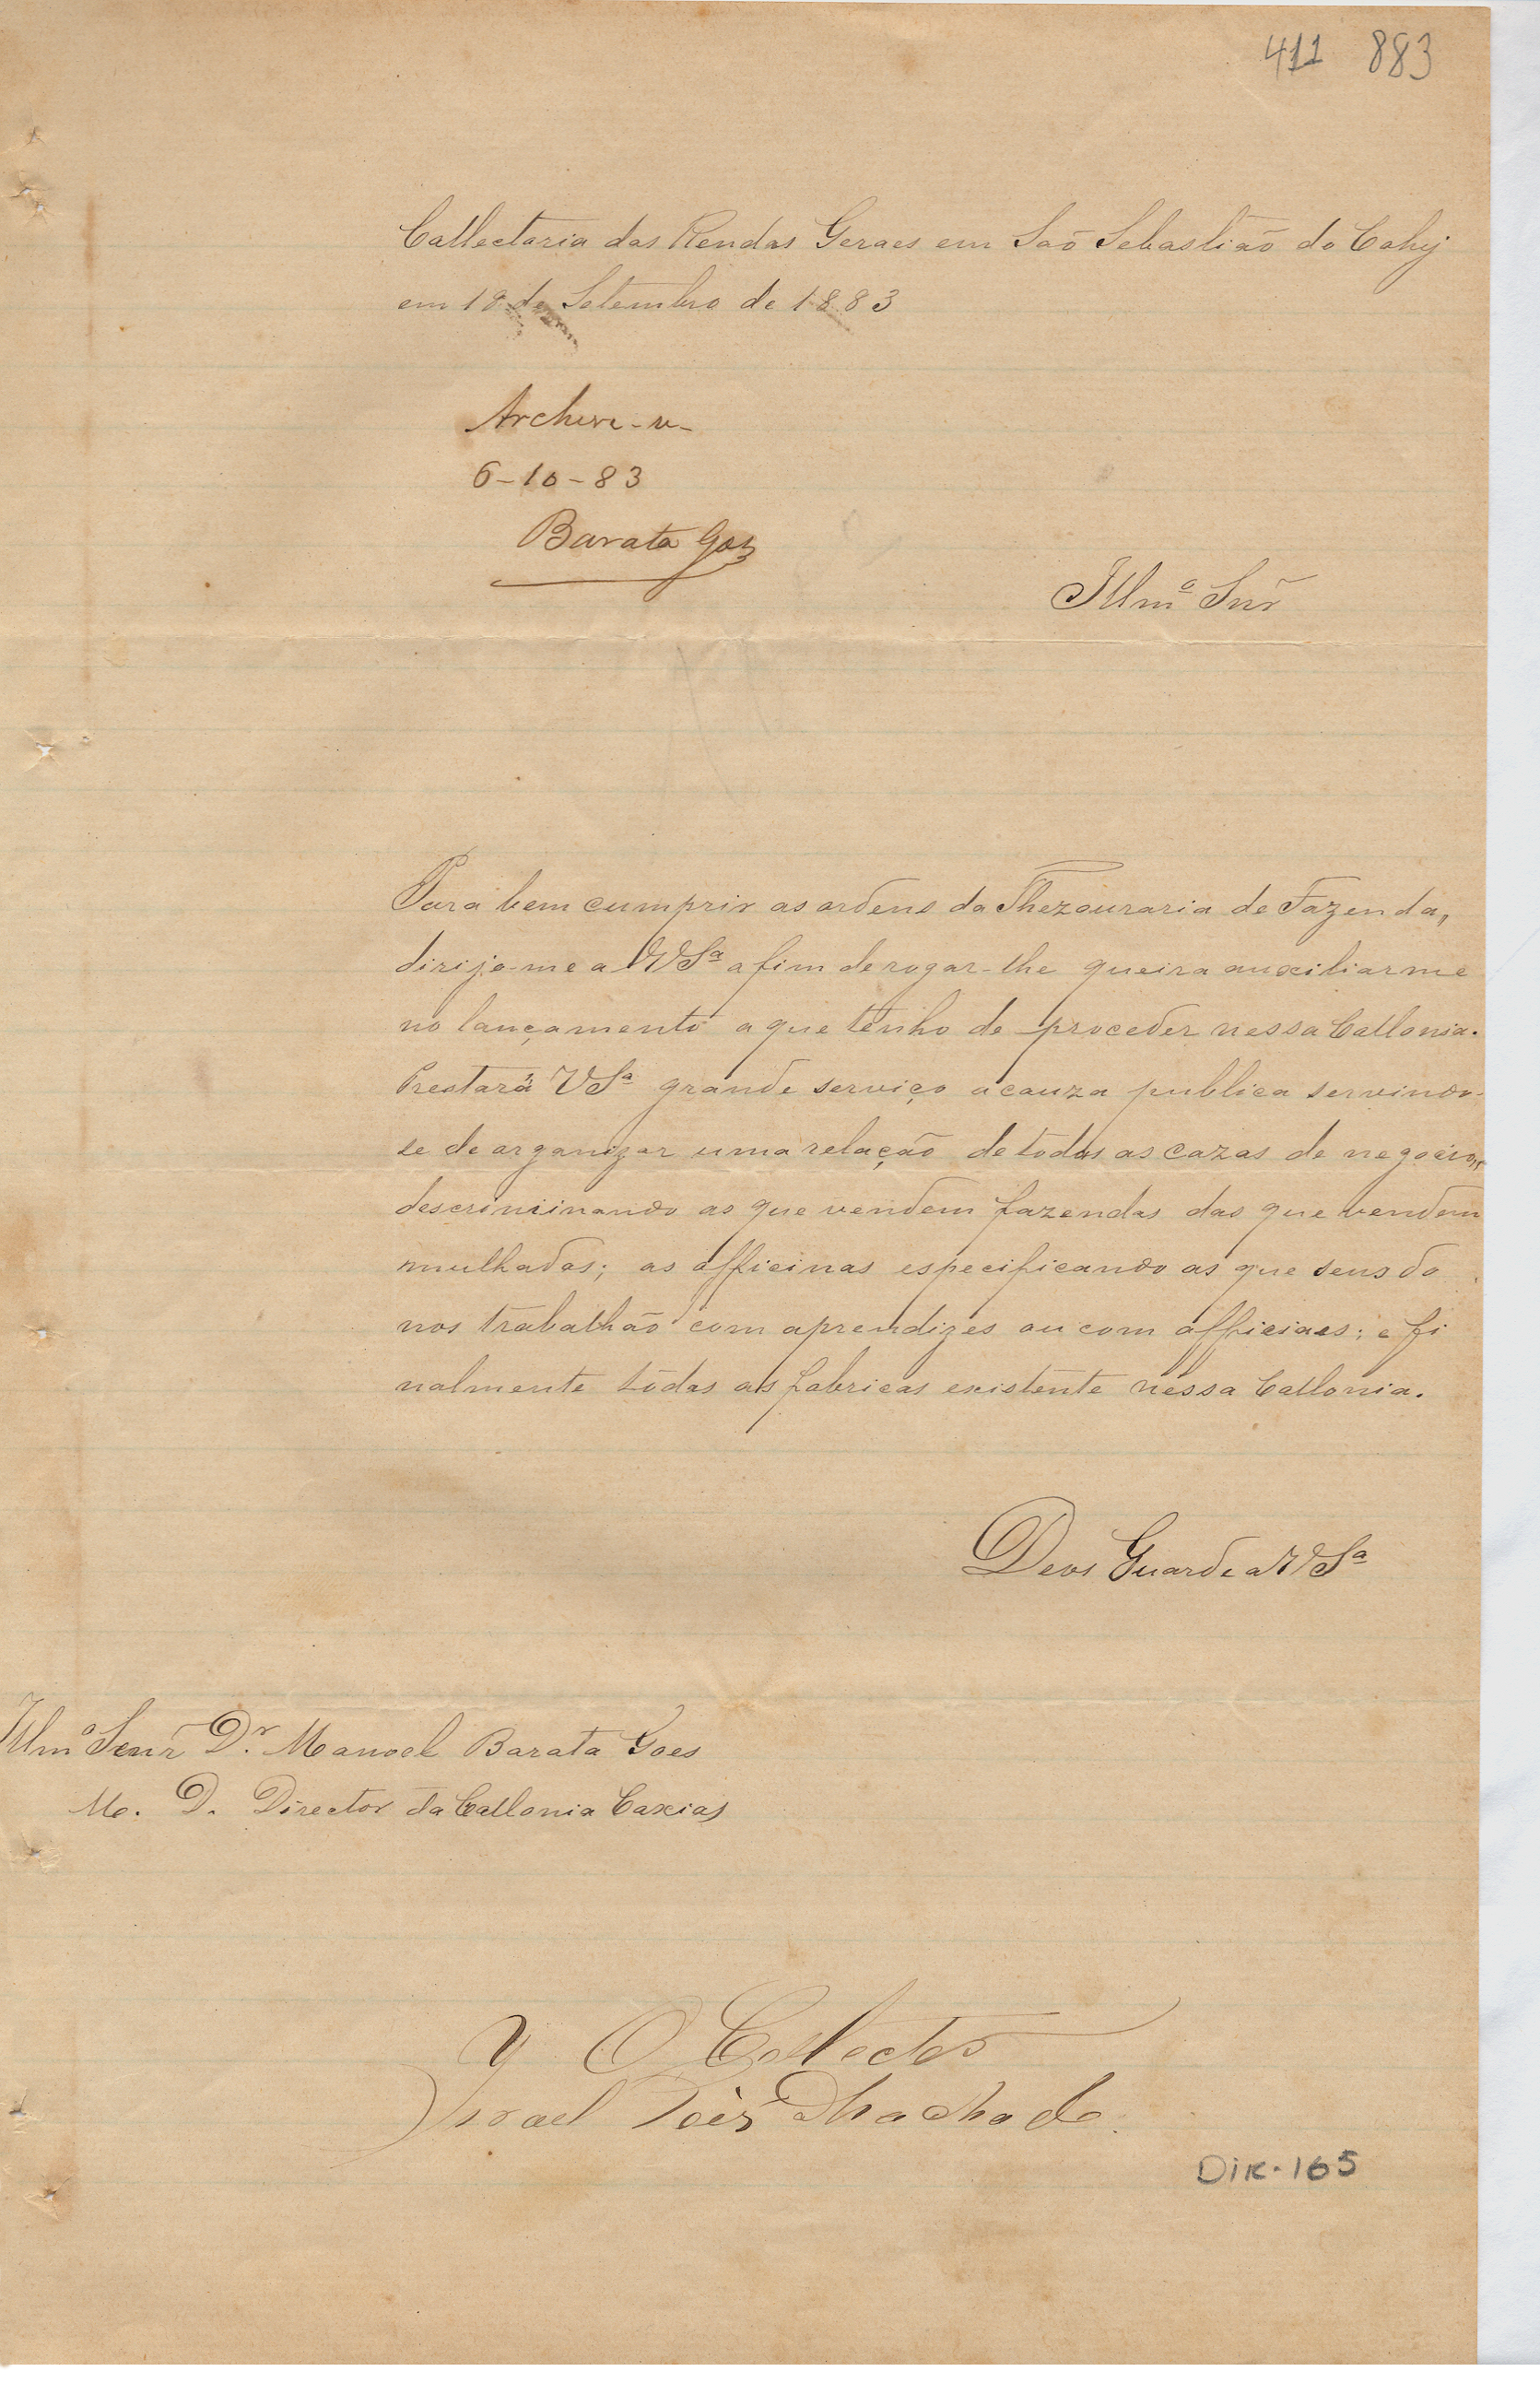 411 883
Collectoria das Rendas Geraes em Saõ Sebastião do Cahy
em 18 de Setembro de 1883
Archive-se
6-10-83
Barata Goes
Illmº Snr
Para bem cumprir as ordens da Thezouraria de Fazenda,,
dirijo-me a VSª a fim de rogar-lhe queira auxiliar me
no lançamento a que tenho de proceder nessa Collonia.
Prestará VSª grande serviço a cauza publica servindo-
se de organizar uma relação de todas as cazas de negocio,,
descriminando as que vendem fazendas das que vendem
mulhados; as officinas especificando as que seus do
nos trabalhão com aprendizes ou com officiaes; e fi
nalmente todas as fabricas existente nessa Collonia.
Deos Guarde a VSª
Illmº Senr Dr. Manoel Barata Goes
M. D. Director da Collonia Caxias
O Collector
Israel Machado
DIR-165